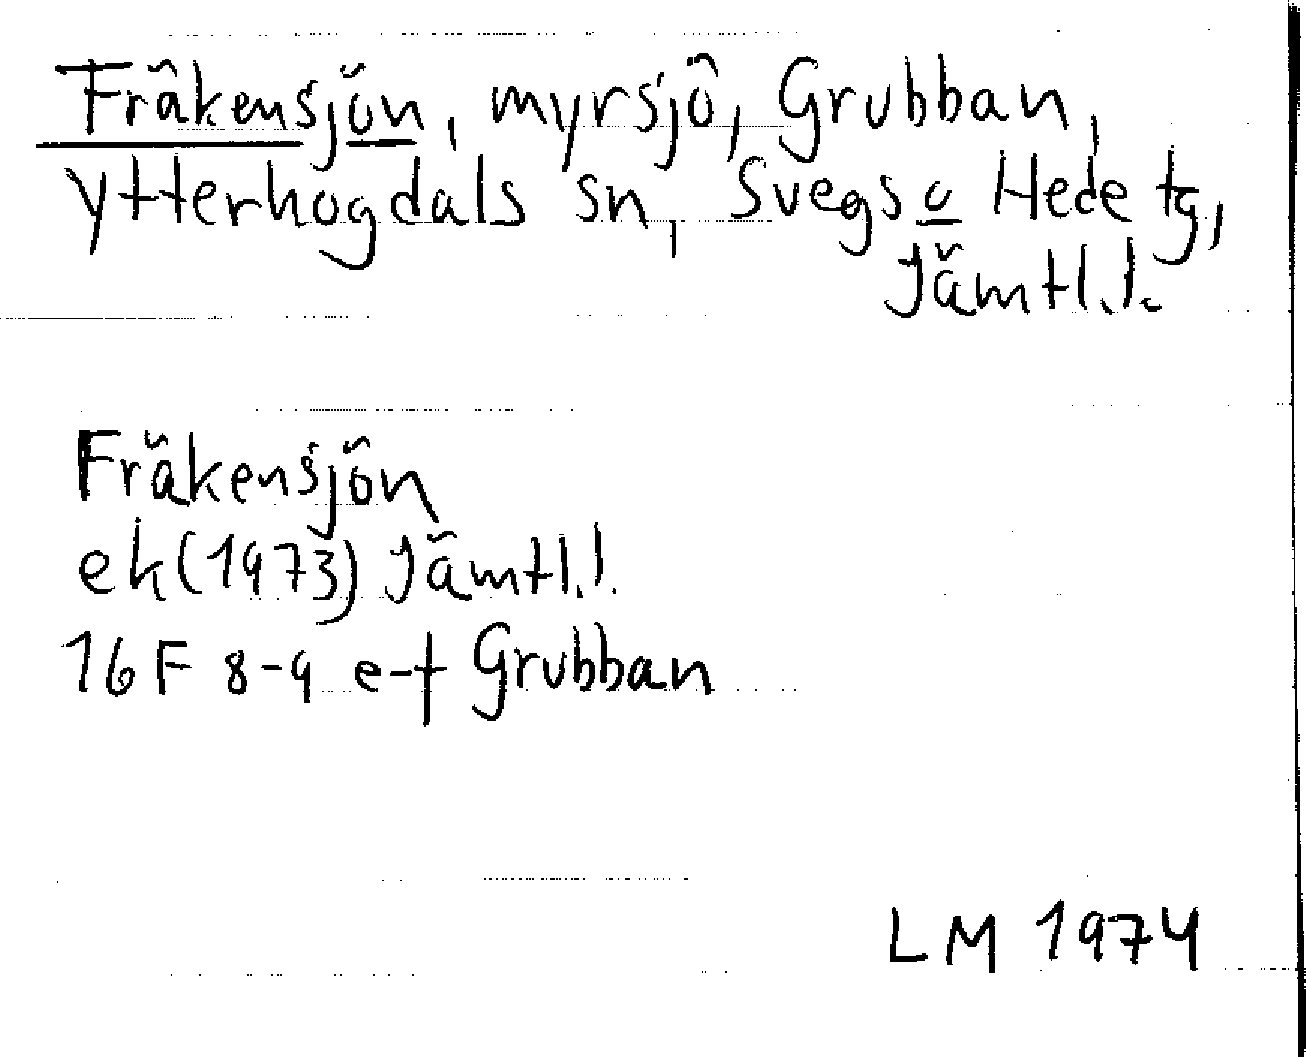 Fräkensjön, myrsjö, Grubban,
Ytterhogdals sn, Svegs o Hede tg,
Jämtl.l.
Fräkensjön
ek(1973) Jämtl.l.
16 F 8-9 e-f Grubban
LM 1974